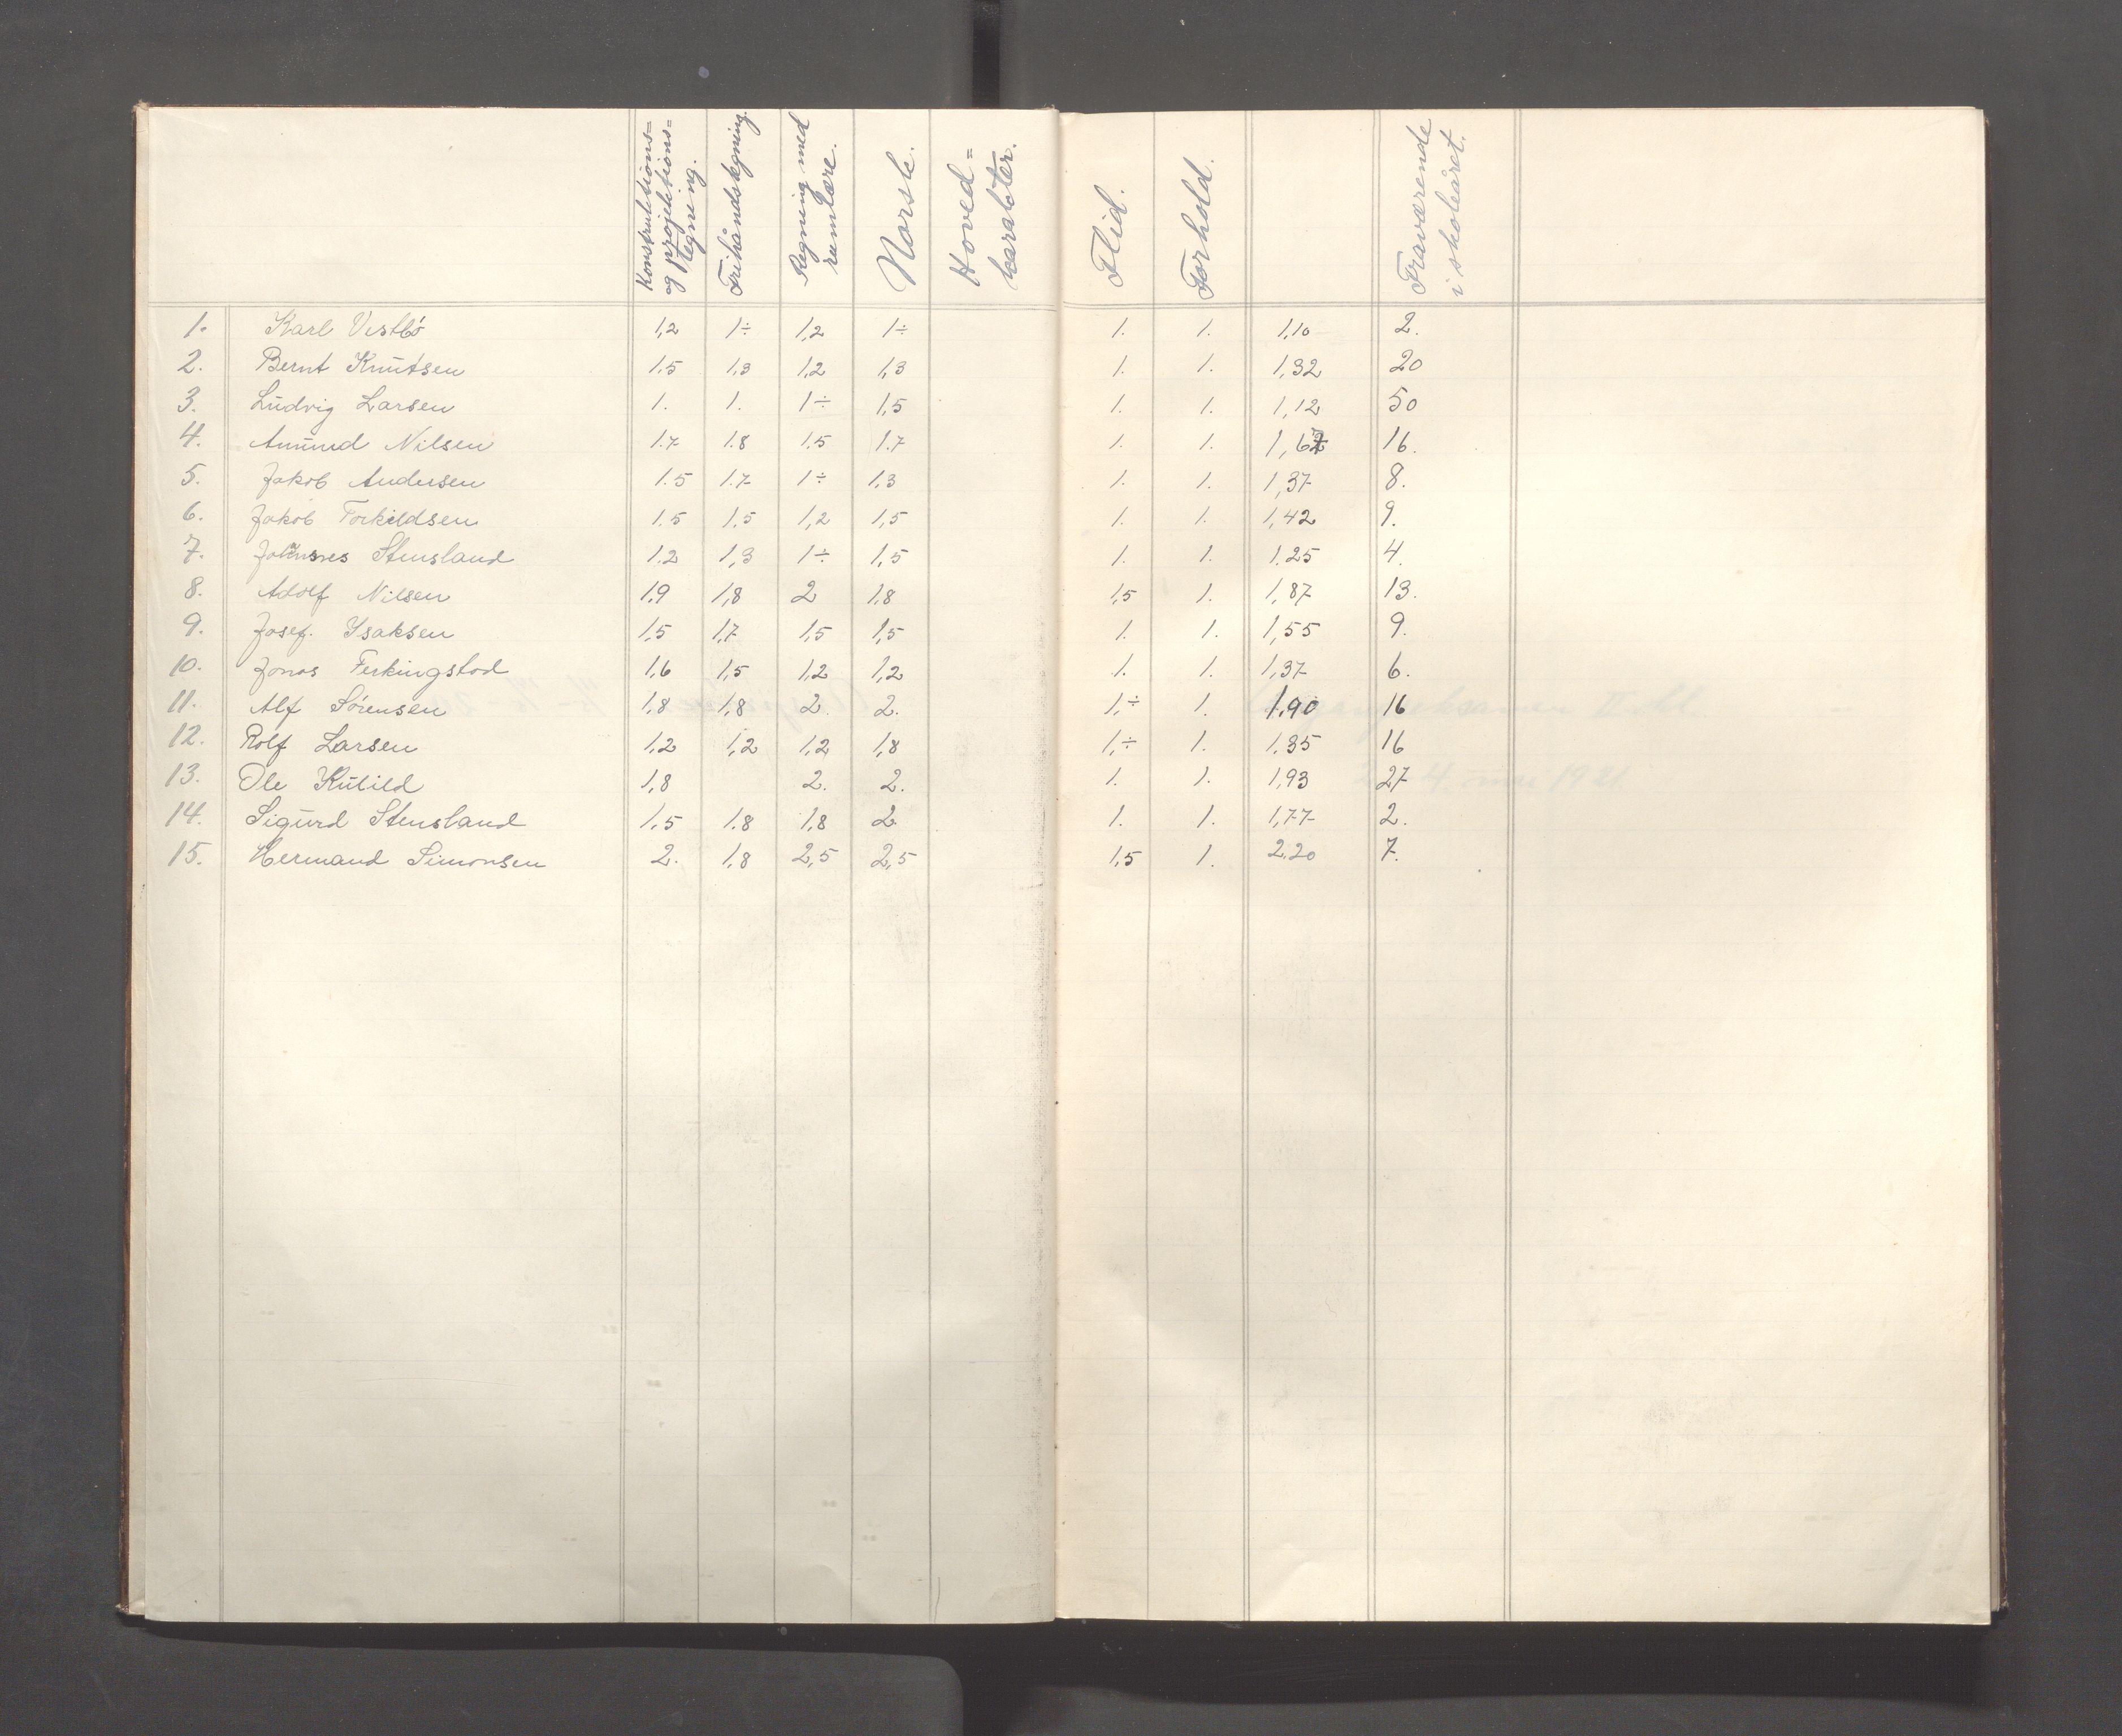 Konstruktions= og projektions= tegning. Frihåndstegning. Regning med rumlære. Norsk. Hoved= karakter. Flid. Forhold. Fraværende i skoleåret.
1. Karl Vestbö 1,2 1÷ 1,2 1÷ 1. 1. 1,10 2.
2. Bernt Knutsen 1,5 1,3 1,2 1,3 1. 1. 1,32 20
3. Ludvig Larsen 1. 1. 1÷ 1,5 1. 1. 1,12 50
4. Amund Nilsen 1.7 1.8 1.5 1.7 1. 1. 1,67 16.
5. Jakob Andersen 1.5 1.7 1÷ 1,3 1. 1. 1,37 8.
6. Jakob Torkildsen 1.5 1,5 1,2 1,5 1. 1. 1,42 9.
7. Johannes Stensland 1.2 1,3 1÷ 1,5 1. 1. 1.25 4.
8. Adolf Nilsen 1,9 1,8 2 1,8 1,5 1. 1,87 13.
9. Josef. Ysaksen 1,5 1,7 1,5 1,5 1. 1. 1,55 9.
10. Jonas Ferkingstad 1,6 1,5 1,2 1,2 1. 1. 1,37 6.
11. Alf Sörensen 1,8 1,8 2. 2. 1,÷ 1. 1,90 16
12. Rolf Larsen 1,2 1,2 1,2 1,8 1,÷ 1. 1,35 16
13. Ole Kulild 1,8 2. 2. 1. 1. 1,93 27
14. Sigurd Stensland 1,5 1.8 1,8 2. 1. 1. 1,77 2.
15. Hermand Simonsen 2. 1,8 2,5 2,5 1,5 1. 2,20 7.